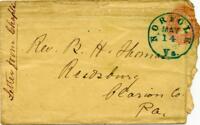 Letter from Charlie
NORFOLK
MAY
14
Va.
Rev. B. H. Thomas
Reidsburg
Clarion Co
Pa.